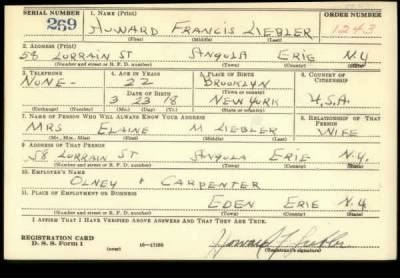 SERIAL NUMBER 1. NAME (Print) ORDER NUMBER
269 HOWARD FRANCIS LIEBLER 1243
(First) (Middle) (Last)
2. ADDRESS (Print)
58 LORRAIN ST ANGOLA ERIE NY
(Number and street or R. F. D. number) (Town) (County) (State)
3. TELEPHONE 4. AGE IN YEARS 5. PLACE OF BIRTH 6. COUNTRY OF CITIZENSHIP
NONE - 22 BROOKLYN
DATE OF BIRTH (Town or county)
3 23 18 NEW YORK U.S.A.
(Exchange) (Number) (Mo.) (Day) (Yr.) (State or country)
7. NAME OF PERSON WHO WILL ALWAYS KNOW YOUR ADDRESS 8. RELATIONSHIP OF THAT PERSON
MRS ELAINE M LIEBLER WIFE
(Mr., Mrs., Miss) (First) (Middle) (Last)
9. ADDRESS OF THAT PERSON
58 LORRAIN ST ANGOLA ERIE N.Y.
(Number and street or R. F. D. number) (Town) (County) (State)
10. EMPLOYER'S NAME
OLNEY & CARPENTER
11. PLACE OF EMPLOYMENT OR BUSINESS
EDEN ERIE N.Y.
(Number and street or R. F. D. number) (Town) (County) (State)
I AFFIRM THAT I HAVE VERIFIED ABOVE ANSWERS AND THAT THEY ARE TRUE.
REGISTRATION CARD
D. S. S. Form 1 (over) 16-17105 Howard F. Liebler
(Registrant's signature)